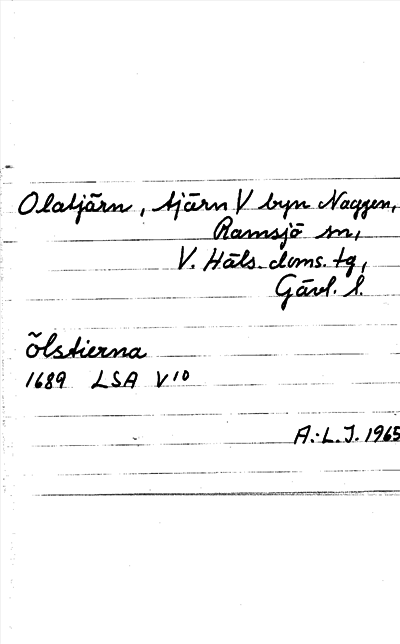 Olatjärn, tjärn V byn Naggen,
Ramsjö sn,
V. Häls. doms. tg,
Gävl. l.
Ölstierna
1689 LSA V10
A.-L.J. 1965